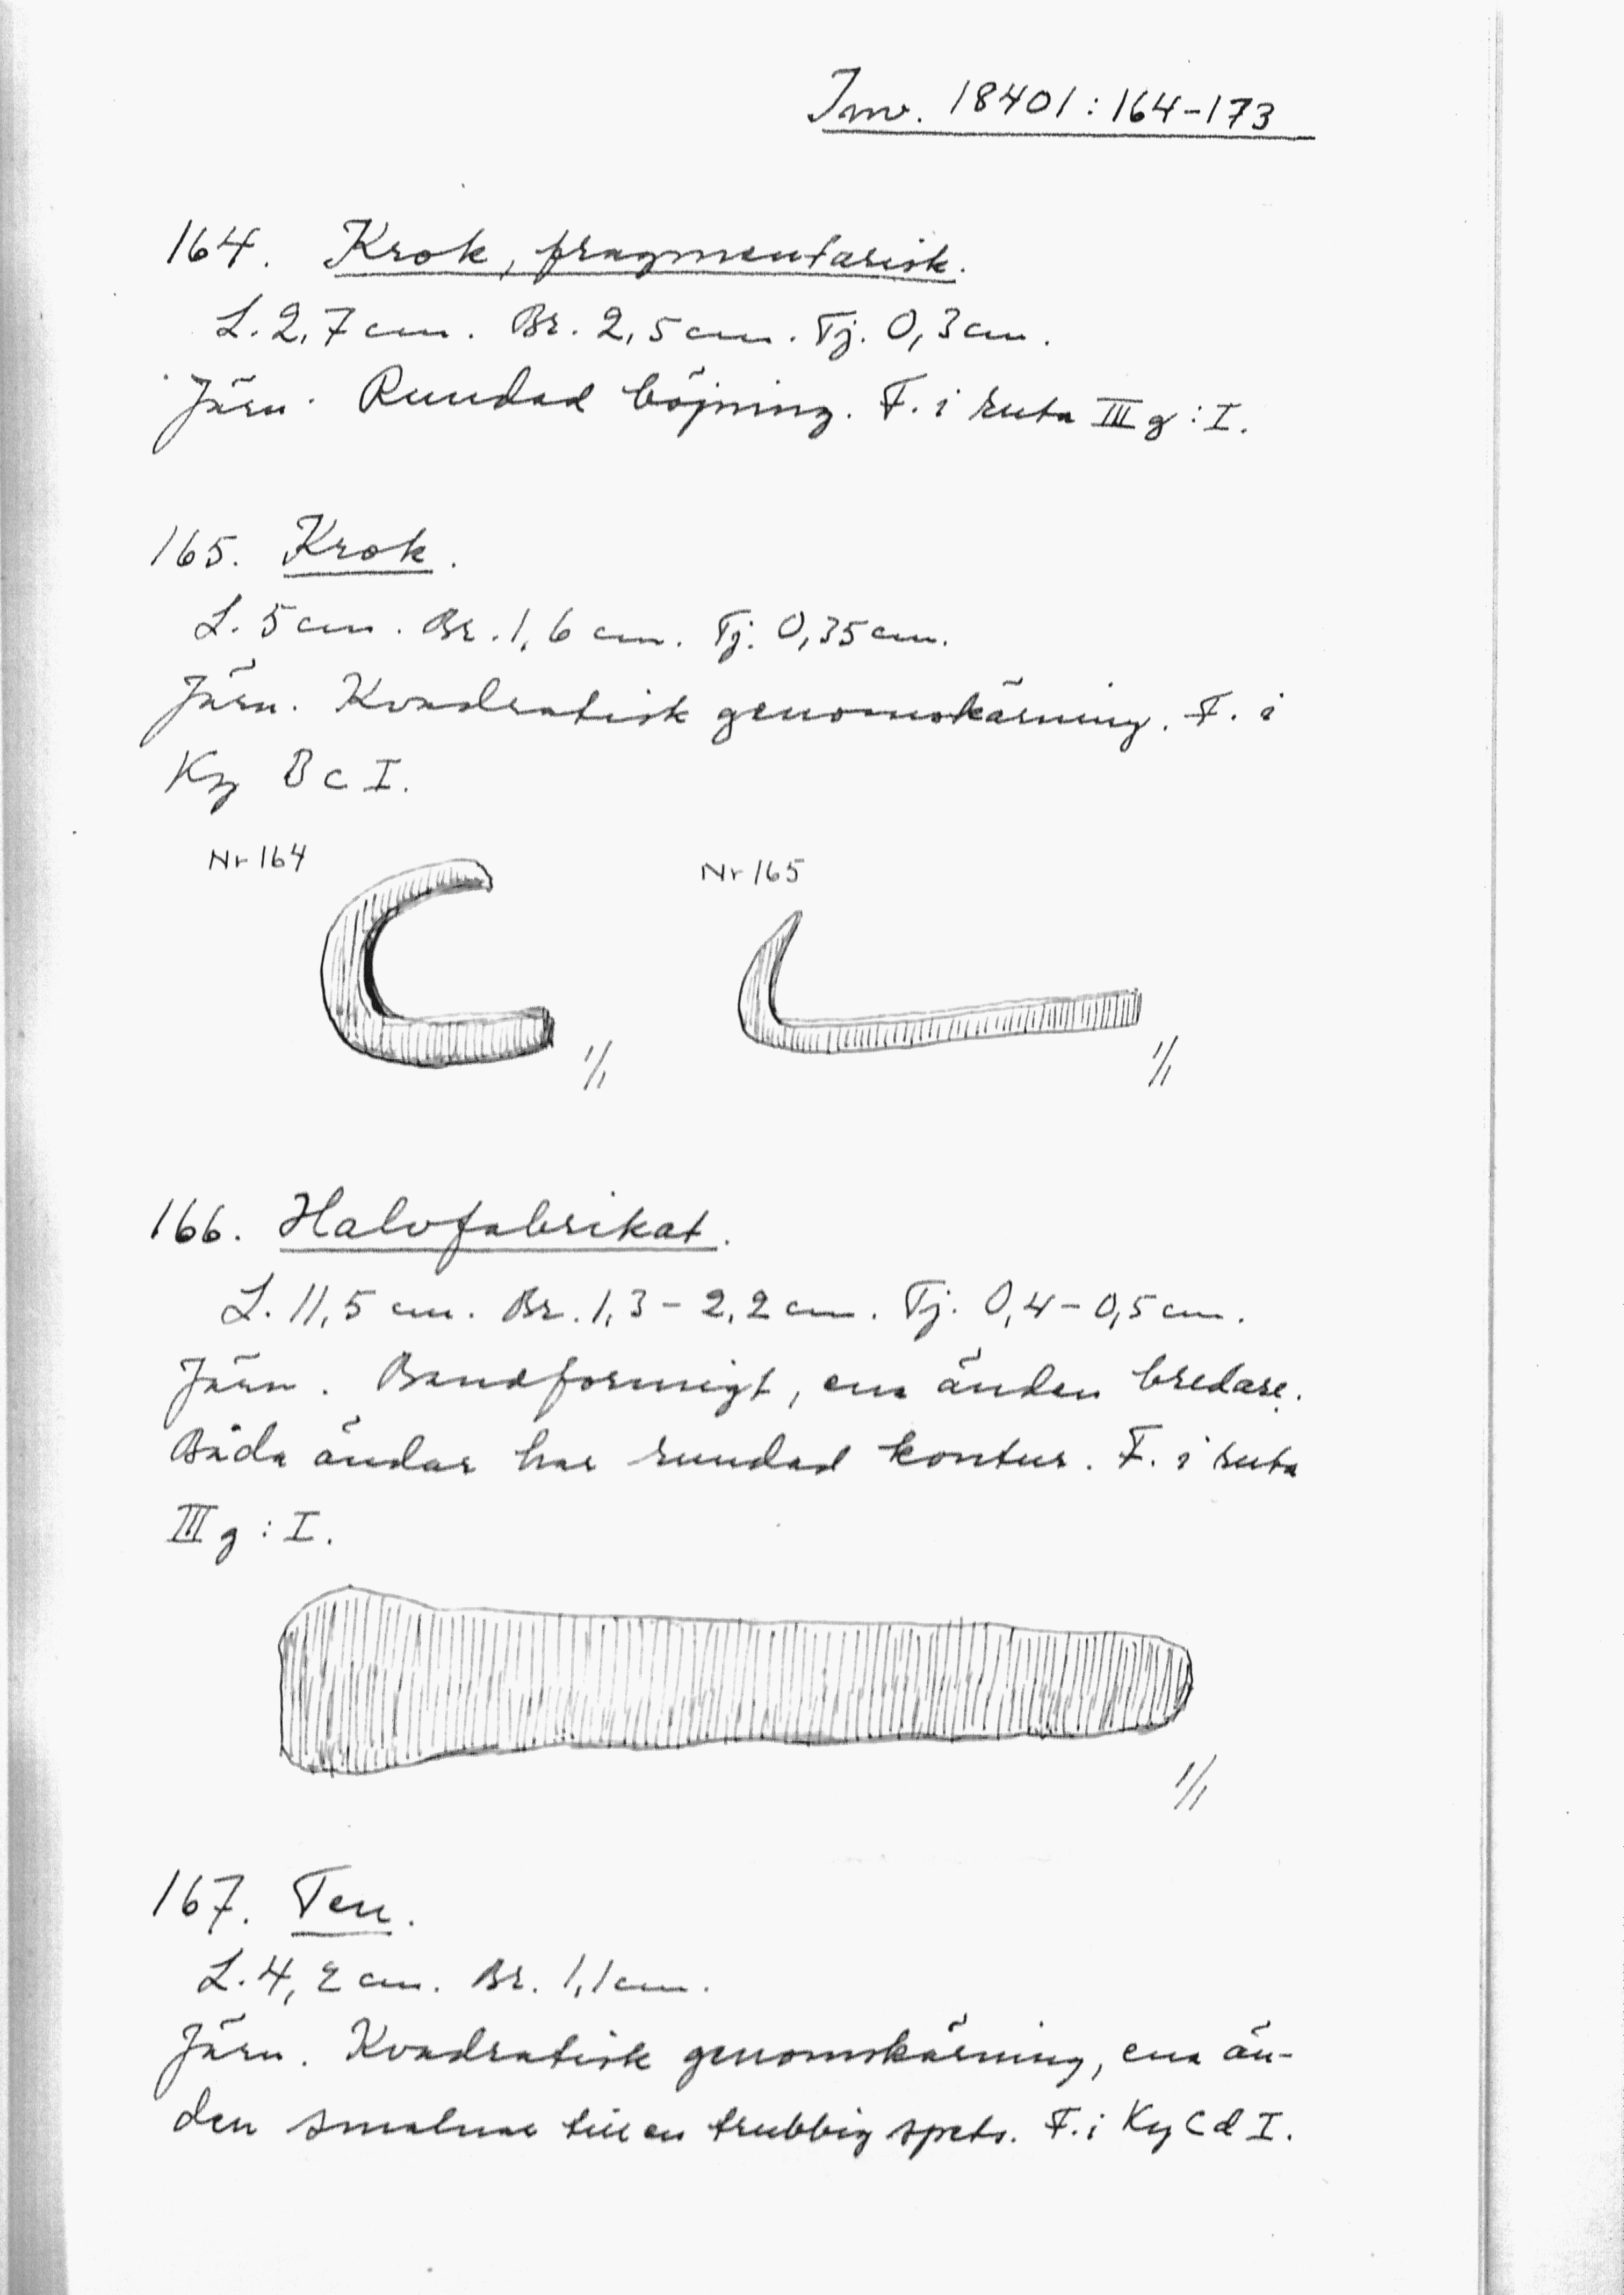 Inv. 18401:164-173
164. Krok, fragmentarisk.
L. 2,7 cm. Br. 2,5 cm. Tj. 0,3 cm.
Järn. Rundad böjning. F. i ruta III g:I.
165. Krok.
L. 5 cm. Br. 1,6 cm. Tj. 0,35 cm.
Järn. Kvadratisk genomskärning. F. i
Ky B c I.
Nr 164
Nr 165
1/1
1/1
166. Halvfabrikat.
L. 11,5 cm. Br. 1,3-2,2 cm. Tj. 0,4-0,5 cm.
Järn. Bandformigt, ena änden bredare.
Båda ändar har rundad kontur. F. i ruta
III g:I.
1/1
167. Ten.
L. 4,2 cm. Br. 1,1 cm.
Järn. Kvadratisk genomskärning, ena än-
den smalnar till en trubbig spets. F. i Ky C d I.